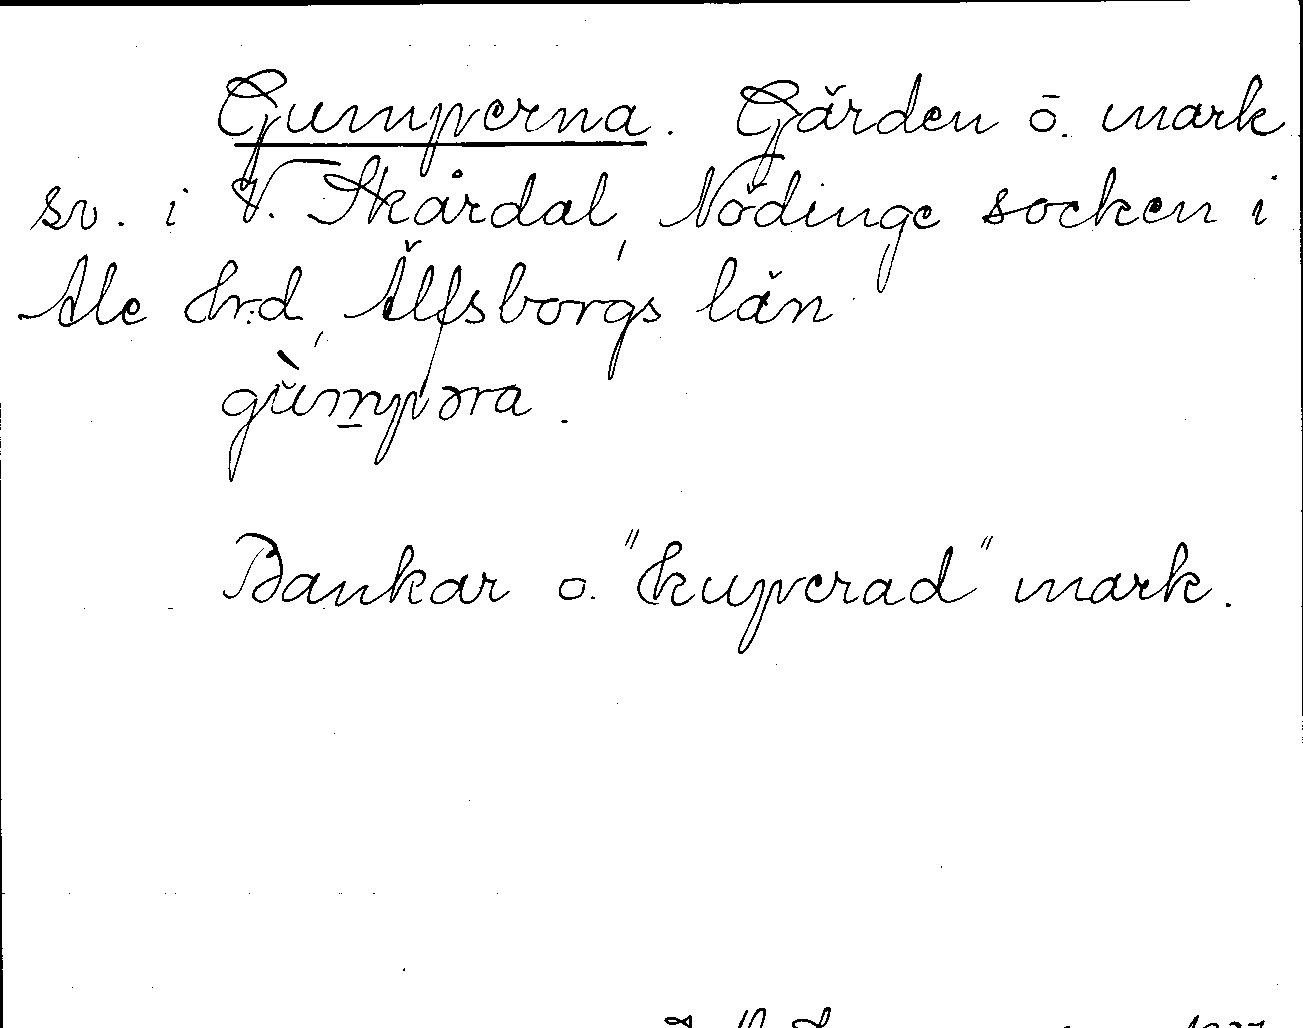 Gumperna. Gärden o. mark
sv. i V. Skårdal, Nödinge socken i
Ale hrd, Älfsborgs län
gùmpəra.
Bankar o. "kuperad" mark.